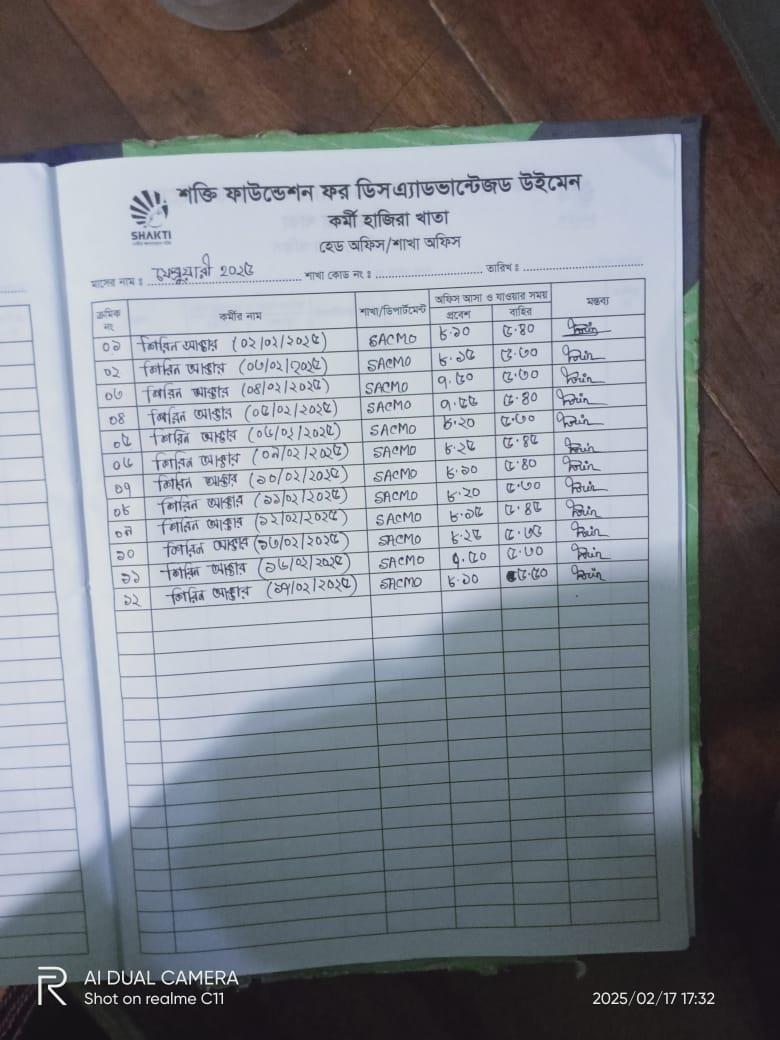 শক্তি ফাউন্ডেশন ফর ডিসএ্যাডভান্টেজড উইমেন
কর্মী হাজিরা খাতা
হেড অফিস/শাখা অফিস
SHAKTI
মাসের নাম ঃ ফেব্রুয়ারী ২০২৫ শাখা কোড নং ঃ তারিখ ঃ
ক্রমিক নং কর্মীর নাম শাখা/ডিপার্টমেন্ট অফিস আসা ও যাওয়ার সময় মন্তব্য
প্রবেশ বাহির
০১ শিরিন আক্তার (০২/০২/২০২৫) SACMO ৮.১০ ৫.৪০
০২ শিরিন আক্তার (০৩/০২/২০২৫) SACMO ৮.১৫ ৫.৩০
০৩ শিরিন আক্তার (০৪/০২/২০২৫) SACMO ৭.৫০ ৫.৩০
০৪ শিরিন আক্তার (০৫/০২/২০২৫) SACMO ৭.৫৫ ৫.৪০
০৫ শিরিন আক্তার (০৬/০২/২০২৫) SACMO ৮.২০ ৫.৩০
০৬ শিরিন আক্তার (০৯/০২/২০২৫) SACMO ৮.২৫ ৫.৪৫
০৭ শিরিন আক্তার (১০/০২/২০২৫) SACMO ৮.১০ ৫.৪০
০৮ শিরিন আক্তার (১১/০২/২০২৫) SACMO ৮.২০ ৫.৩০
০৯ শিরিন আক্তার (১২/০২/২০২৫) SACMO ৮.১৫ ৫.৪৫
১০ শিরিন আক্তার (১৩/০২/২০২৫) SACMO ৮.২৫ ৫.৩৫
১১ শিরিন আক্তার (১৬/০২/২০২৫) SACMO ৭.৫০ ৫.৩০
১২ শিরিন আক্তার (১৭/০২/২০২৫) SACMO ৮.১০ ৫.৫০
AI DUAL CAMERA
Shot on realme C11
2025/02/17 17:32